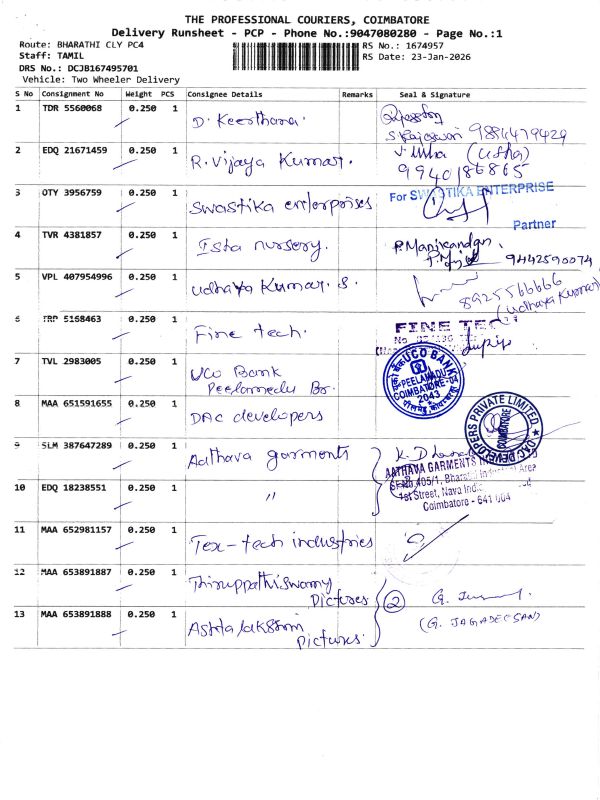 THE PROFESSIONAL COURIERS, COIMBATORE
Delivery Runsheet - PCP - Phone No.:9047080280 - Page No.:1
Route: BHARATHI CLY PC4
RS No.: 1674957
Staff: TAMIL
RS Date: 23-Jan-2026
DRS No.: DCJB167495701
Vehicle: Two Wheeler Delivery
S No Consignment No Weight PCS Consignee Details Remarks Seal & Signature
1 TDR 5560068 0.250 1 D. Keerthana.
S. Rajeswari 9894479429
2 EDQ 21671459 0.250 1 R. Vijaya Kumar. V. Usha (Usha)
9940186865
3 OTY 3956759 0.250 1 Swastika enterprises For SWASTIKA ENTERPRISE
Partner
4 TVR 4381857 0.250 1 Isha nursery. P. Manikandan
9442590074
5 VPL 407954996 0.250 1 Udhaya Kumar. S. 8925566666
(Udhaya Kumar)
6 TRP 5168463 0.250 1 Fine tech. FINE TECH
7 TVL 2983005 0.250 1 UCO Bank
Peelamedu Br.
UCO BANK
PEELAMEDU
COIMBATORE-04
2043
8 MAA 651591655 0.250 1 DAC developers
DAC DEVELOPERS PRIVATE LIMITED
COIMBATORE
9 SLM 387647289 0.250 1 Aathava garments
AATHAVA GARMENTS
SF.No 405/1, Bharathi Area
1st Street, Nava India
Coimbatore - 641 004
10 EDQ 18238551 0.250 1 "
11 MAA 652981157 0.250 1 Tex-tech industries
12 MAA 653891887 0.250 1 Thiruppathiswamy
Pictures
2
13 MAA 653891888 0.250 1 Ashtalakshmi
Pictures
(G. JAGADEESAN)